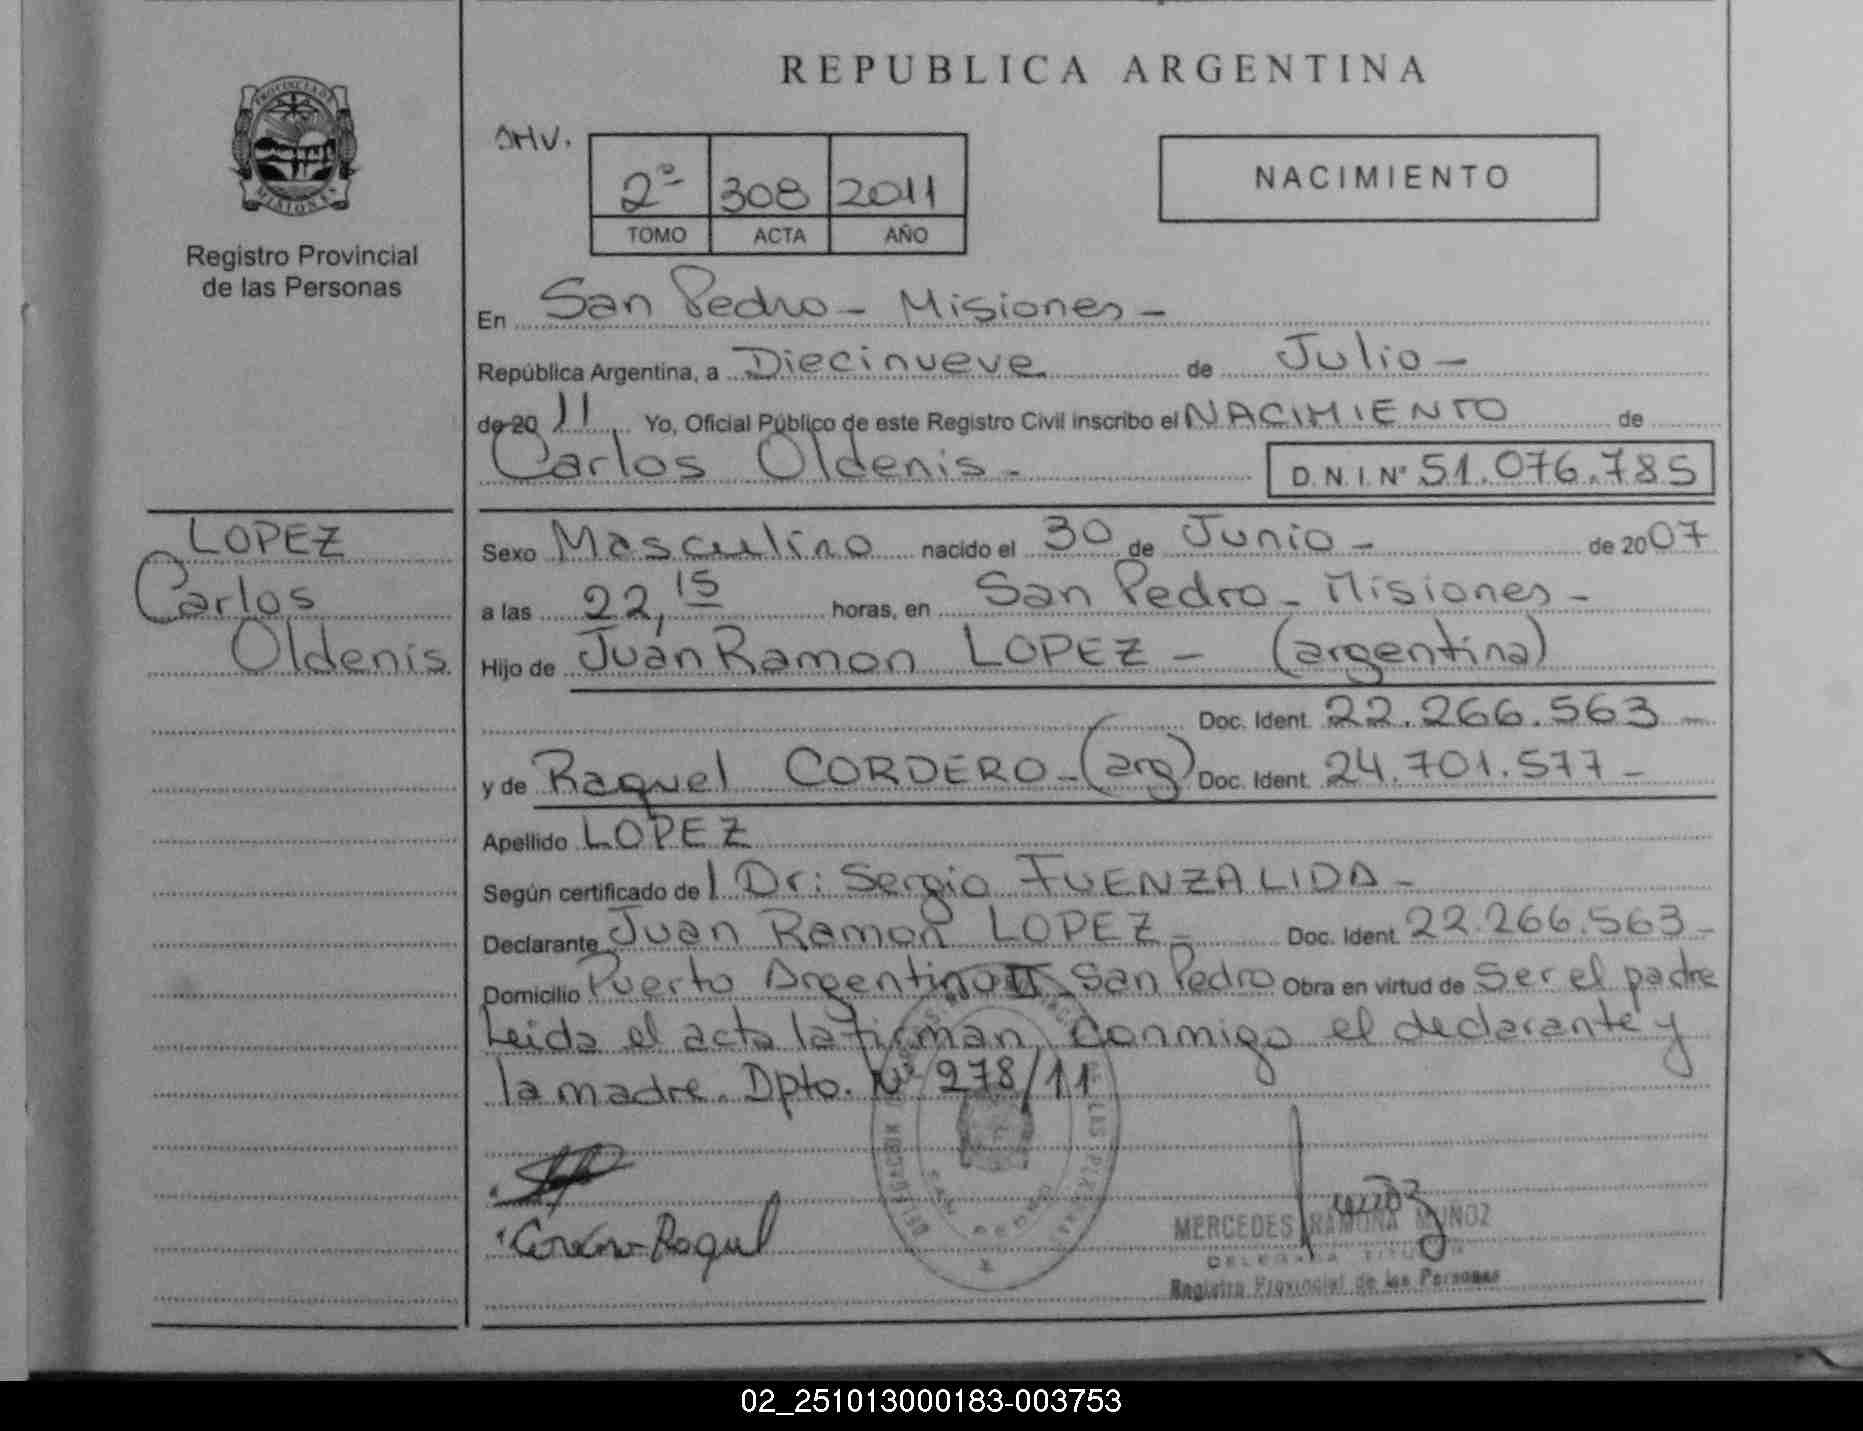 REPUBLICA ARGENTINA
PROVINCIA DE
MISIONES
Registro Provincial
de las Personas
SHV.
2º 308 2011
TOMO ACTA AÑO
NACIMIENTO
En San Pedro - Misiones -
República Argentina, a Diecinueve de Julio -
de 20 11 Yo, Oficial Público de este Registro Civil inscribo el NACIMIENTO de
Carlos Oldenis - D.N.I. Nº 51.076.785
LOPEZ
Carlos
Oldenis
Sexo Masculino nacido el 30 de Junio - de 2007
a las 22,15 horas, en San Pedro - Misiones -
Hijo de Juan Ramon LOPEZ - (argentina)
Doc. Ident. 22.266.563 -
y de Raquel CORDERO - (arg) Doc. Ident. 24.701.577 -
Apellido LOPEZ
Según certificado de l Dr: Sergio FUENZALIDA -
Declarante Juan Ramon LOPEZ - Doc. Ident. 22.266.563 -
Domicilio Puerto Argentino II San Pedro Obra en virtud de Ser el padre
Leida el acta la firman conmigo el declarante y
la madre. Dpto. Nº 278/11
Cordero Raquel
MERCEDES RAMONA MUÑOZ
DELEGADA TITULAR
Registro Provincial de las Personas
02_251013000183-003753